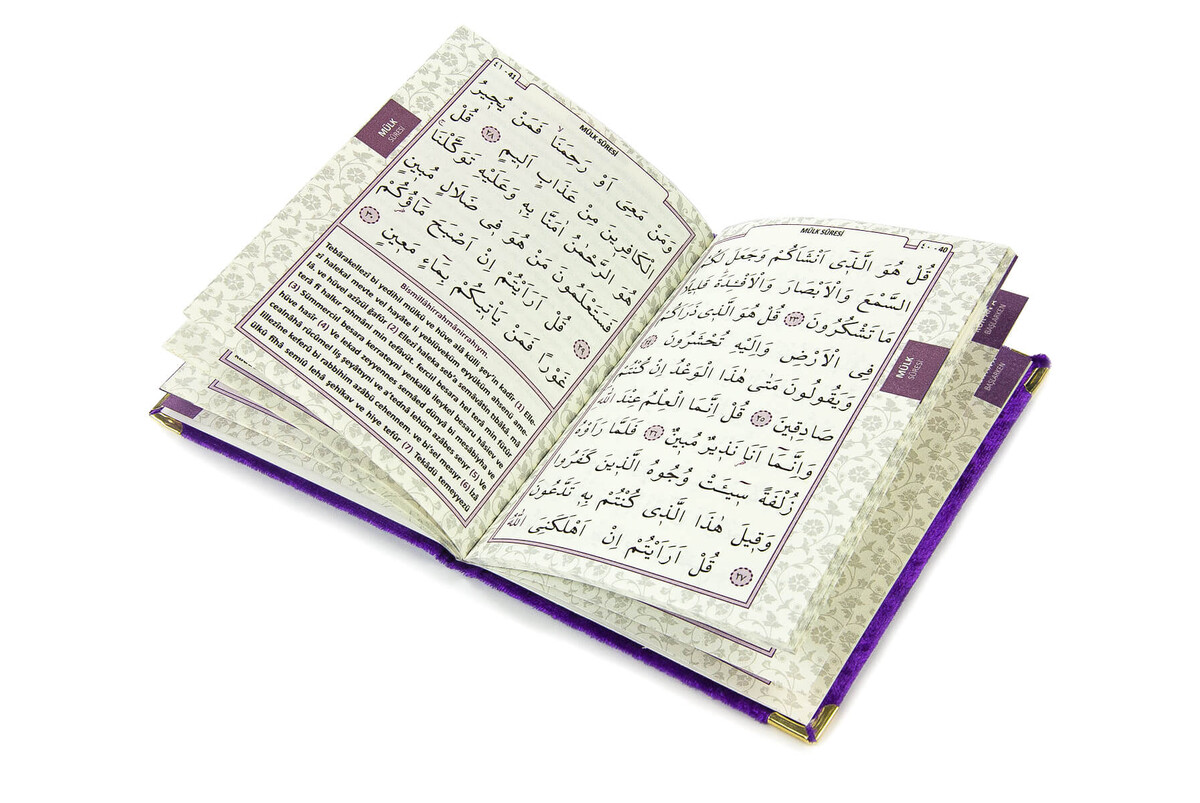 MÜLK SÛRESİ
٤٠ - 40
قُلْ هُوَ الَّذٖٓى اَنْشَاَكُمْ وَجَعَلَ لَكُمُ
السَّمْعَ وَالْاَبْصَارَ وَالْاَفْـِٔدَةَ قَلٖيلًا
مَا تَشْكُرُونَ ﴿٢٣﴾ قُلْ هُوَ الَّذٖى ذَرَاَكُمْ
فِى الْاَرْضِ وَاِلَيْهِ تُحْشَرُونَ ﴿٢٤﴾
وَيَقُولُونَ مَتٰى هٰذَا الْوَعْدُ اِنْ كُنْتُمْ
صَادِقٖينَ ﴿٢٥﴾ قُلْ اِنَّمَا الْعِلْمُ عِنْدَ اللّٰهِ
وَاِنَّمَٓا اَنَا۬ نَذٖيرٌ مُبٖينٌ ﴿٢٦﴾ فَلَمَّا رَاَوْهُ
زُلْفَةً سٖٓيـَٔتْ وُجُوهُ الَّذٖينَ كَفَرُوا
وَقٖيلَ هٰذَا الَّذٖى كُنْتُمْ بِهٖ تَدَّعُونَ
﴿٢٧﴾ قُلْ اَرَاَيْتُمْ اِنْ اَهْلَكَنِىَ اللّٰهُ
MÜLK
SÛRESİ
BAŞLARKEN
BAŞLARKEN
٤١ - 41
MÜLK SÛRESİ
وَمَنْ مَعِىَ اَوْ رَحِمَنَاۙ فَمَنْ يُجٖيرُ
الْكَافِرٖينَ مِنْ عَذَابٍ اَلٖيمٍ ﴿٢٨﴾ قُلْ
هُوَ الرَّحْمٰنُ اٰمَنَّا بِهٖ وَعَلَيْهِ تَوَكَّلْنَاۚ
فَسَتَعْلَمُونَ مَنْ هُوَ فٖى ضَلَالٍ مُبٖينٍ
﴿٢٩﴾ قُلْ اَرَاَيْتُمْ اِنْ اَصْبَحَ مَٓاؤُ۬كُمْ
غَوْرًا فَمَنْ يَأْتٖيكُمْ بِمَٓاءٍ مَعٖينٍ ﴿٣٠﴾
MÜLK
SÛRESİ
Bismillâhirrahmânirrahıym.
Tebârakellezî bi yedihil mülkü ve hüve alâ külli şey'in kadîr (1) Elle-
zî halekal mevte vel hayâte li yeblüveküm eyyüküm ahsenü ame-
lâ. ve hüvel azîzül ğafûr (2) Ellezî haleka seb'a semâvâtin tıbâkâ mâ
terâ fî halkır rahmâni min tefâvüt. ferciıl besara hel terâ min fütûr
(3) Sümmerciıl besara kerrateyni yenkalib ileykel besaru hâsiev ve
hüve hasîr (4) Ve lekad zeyyennes semâed dünyâ bi mesâbîyha ve
cealnâhâ rücûmel liş şeyâtıyni ve a'tednâ lehüm azâbes seıyr (5) Ve
lillezîne keferû bi rabbihim azâbü cehennem. ve bi'sel mesıyr (6) İzâ
ülkû fîhâ semiû lehâ şehîkav ve hiye tefûr (7) Tekâdü temeyyezü